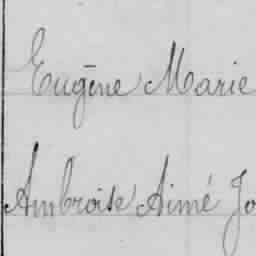 Eugène Marie
Ambroise Aimé Jo